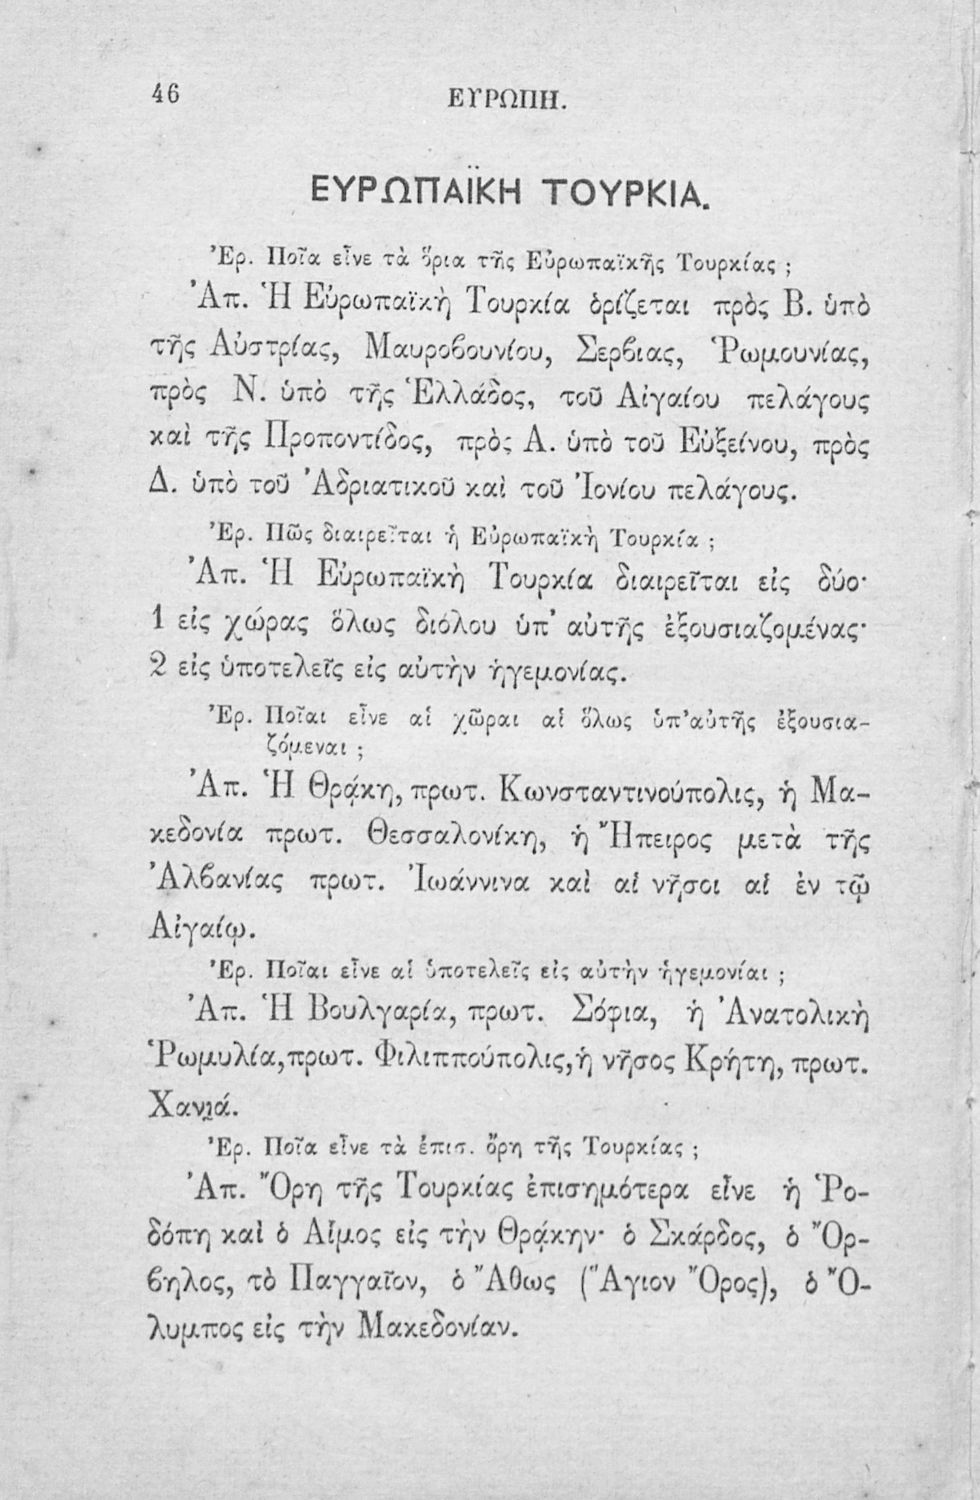 46
ΕΥΡΩΠΗ.
ΕΥΡΩΠΑΪΚΗ ΤΟΥΡΚΙΑ.
Ἐρ. Ποῖα εἶνε τὰ ὅρια τῆς Εὐρωπαϊκῆς Τουρκίας ;
Ἀπ. Ἡ Εὐρωπαϊκὴ Τουρκία ὁρίζεται πρὸς Β. ὑπὸ
τῆς Αὐστρίας, Μαυροβουνίου, Σερβιας, Ῥωμουνίας,
πρὸς Ν. ὑπὸ τῆς Ἑλλάδος, τοῦ Αἰγαίου πελάγους
καὶ τῆς Προποντίδος, πρὸς Α. ὑπὸ τοῦ Εὐξείνου, πρὸς
Δ. ὑπὸ τοῦ Ἀδριατικοῦ καὶ τοῦ Ἰονίου πελάγους.
Ἐρ. Πῶς διαιρεῖται ἡ Εὐρωπαϊκὴ Τουρκία ;
Ἀπ. Ἡ Εὐρωπαϊκὴ Τουρκία διαιρεῖται εἰς δύο·
1 εἰς χώρας ὅλως διόλου ὑπ’ αὐτῆς ἐξουσιαζομένας·
2 εἰς ὑποτελεῖς εἰς αὐτὴν ἡγεμονίας.
Ἐρ. Ποῖαι εἶνε αἱ χῶραι αἱ ὅλως ὑπ’αὐτῆς ἐξουσια-
ζόμεναι ;
Ἀπ. Ἡ Θρᾴκη, πρωτ. Κωνσταντινούπολις, ἡ Μα-
κεδονία πρωτ. Θεσσαλονίκη, ἡ Ἤπειρος μετὰ τῆς
Ἀλβανίας πρωτ. Ἰωάννινα καὶ αἱ νῆσοι αἱ ἐν τῷ
Αἰγαίῳ.
Ἐρ. Ποῖαι εἶνε αἱ ὑποτελεῖς εἰς αὐτὴν ἡγεμονίαι ;
Ἀπ. Ἡ Βουλγαρία, πρωτ. Σόφια, ἡ Ἀνατολικὴ
Ῥωμυλία,πρωτ. Φιλιππούπολις,ἡ νῆσος Κρήτη, πρωτ.
Χανιά.
Ἐρ. Ποῖα εἶνε τὰ ἐπισ. ὄρη τῆς Τουρκίας ;
Ἀπ. Ὄρη τῆς Τουρκίας ἐπισημότερα εἶνε ἡ Ῥο-
δόπη καὶ ὁ Αἷμος εἰς τὴν Θρᾴκην· ὁ Σκάρδος, ὁ Ὄρ-
βηλος, τὸ Παγγαῖον, ὁ Ἄθως (Ἅγιον Ὄρος), ὁ Ὄ-
λυμπος εἰς τὴν Μακεδονίαν.